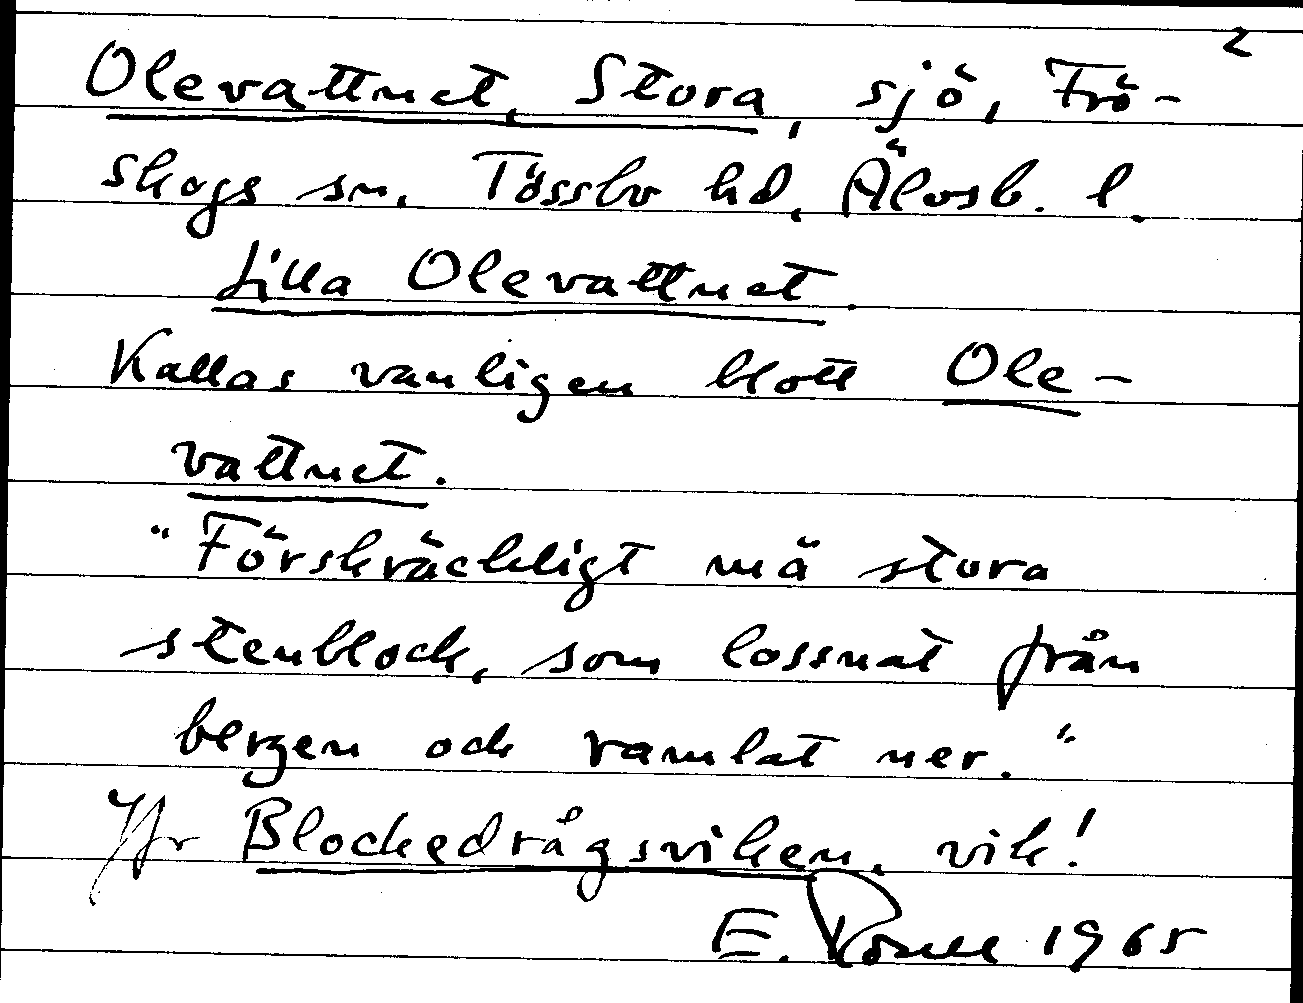 2
Olevattnet, Stora, sjö, Frö-
skogs sn, Tössbo hd, Älvsb. l.
Lilla Olevattnet.
Kallas vanligen blott Ole-
vattnet.
"Förskräckligt mä stora
stenblock, som lossnat från
bergen och ramlat ner."
Jfr Blockedrågsviken, vik!
E. 1965